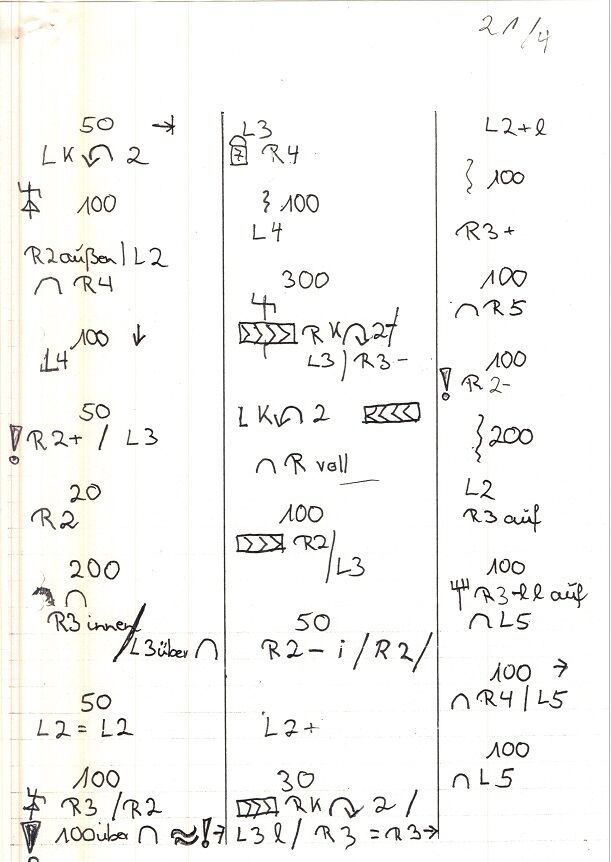 21/4
50 →
LK 2
100
R2außen/L2
∩ R4
100 ↓
L4
50
! R2+ / L3
20
R2
200
∩
R3innen/
L3über ∩
50
L2 = L2
100
R3 /R2
100über ∩ ≈!→
L3
7 R4
} 100
L4
300
>>>> RK 2
L3 / R3 -
LK 2 <<<
∩ R voll
100
>>> R2/
L3
50
R2 - i / R2 /
L2+
30
>>> RK 2 /
L3 l / R3 = R3→
L2+l
} 100
R3+
100
∩ R5
100
! R2-
} 200
L2
R3 auf
100
R3-ll auf
∩ L5
100 →
∩ R4 / L5
100
∩ L5